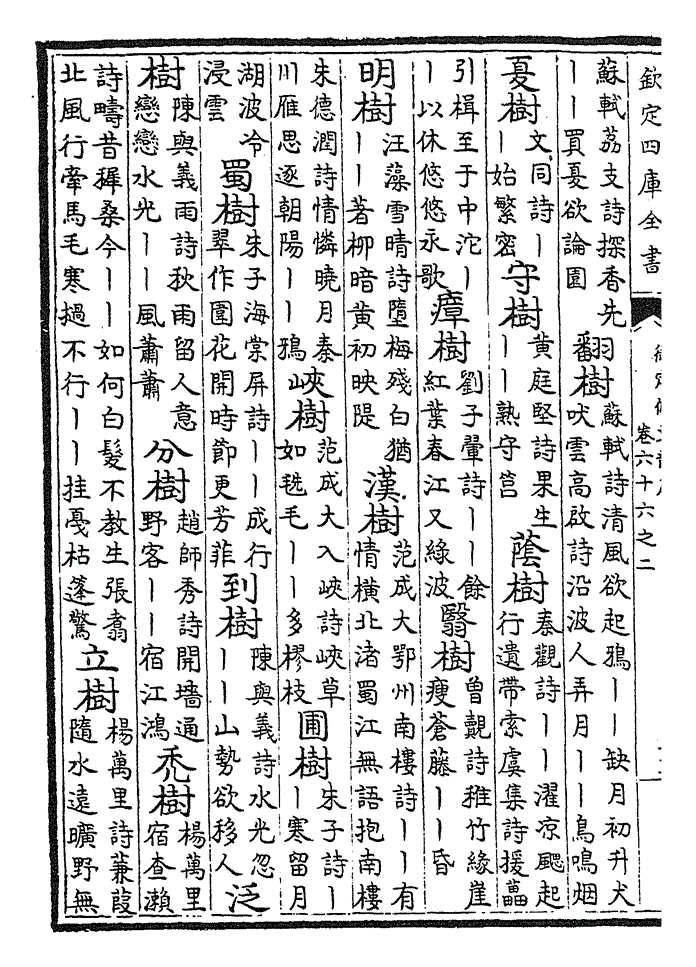 欽定四庫全書
卷六十六之二
蘇軾荔支詩探香先
——買憂欲論園
翻樹
蘇軾詩清風欲起鴉——缺月初升犬
吠雲高啟詩沿波人弄月——鳥鳴烟
夏樹
文同詩—
—始繁密
守樹
黃庭堅詩果生
——熟守筥
蔭樹
秦觀詩——濯凉颸起
行遺帶索虞集詩援畾
引楫至于中沱—
—以休悠悠永歌
瘴樹
劉子翬詩——餘
紅葉春江又綠波
翳樹
曾覿詩稚竹緣崖
瘦蒼藤——昏
明樹
汪藻雪晴詩墮梅殘白猶
——著柳暗黃初映隄
漢樹
范成大鄂州南樓詩——有
情橫北渚蜀江無語抱南樓
朱德潤詩情憐曉月秦
川雁思逐朝陽——鴉
峽樹
范成大入峽詩峽草
如毯毛——多樛枝
圃樹
朱子詩—
—寒留月
湖波冷
浸雲
蜀樹
朱子海棠屏詩——成行
翠作圍花開時節更芳菲
到樹
陳與義詩水光忽
——山勢欲移人
泛
樹
陳與義雨詩秋雨留人意
戀戀水光——風蕭蕭
分樹
趙師秀詩開墻通
野客——宿江鴻
禿樹
楊萬里
宿查瀨
詩疇昔穉桑今——如何白髮不教生張翥
北風行牽馬毛寒撾不行——挂戞枯蓬驚
立樹
楊萬里詩蒹葭
隨水遠曠野無